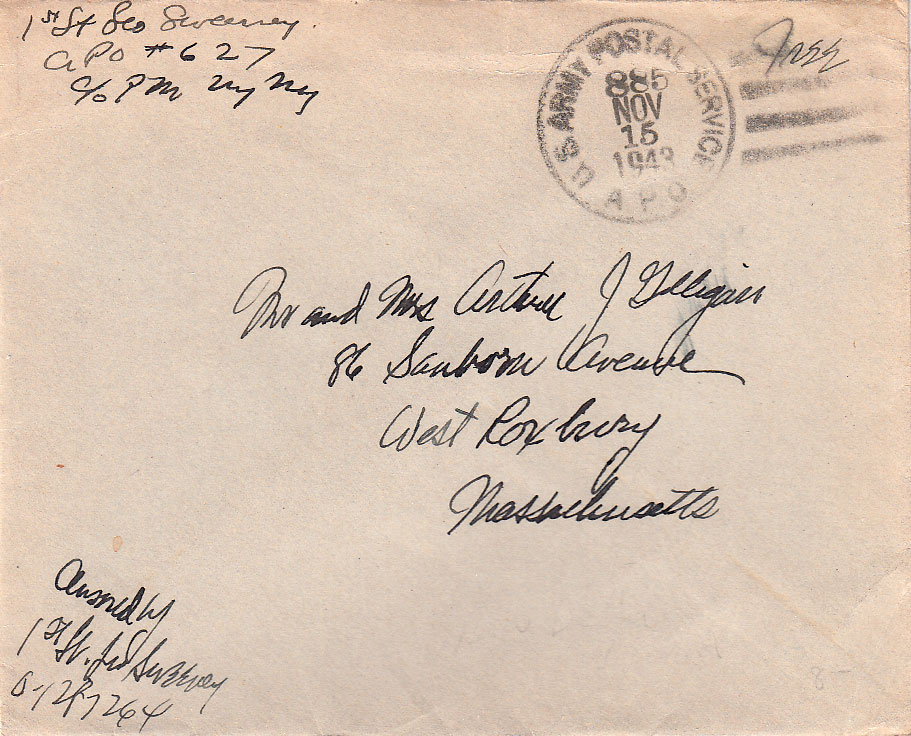 1st Lt Geo Sweeney
APO #627
c/o PM NY NY
U.S. ARMY POSTAL SERVICE
A.P.O.
885
NOV
15
1943
Free
Mr and Mrs Arthur J Gilligan
86 Sanborn Avenue
West Roxbury
Massachusetts
Censored by
1st Lt. Geo Sweeney